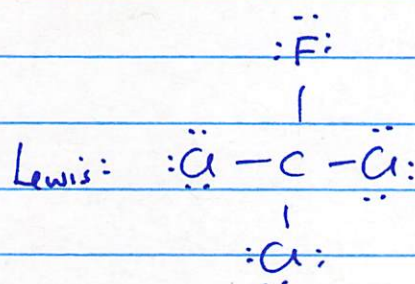 :F:
Lewis: :Cl — C — Cl:
:Cl: